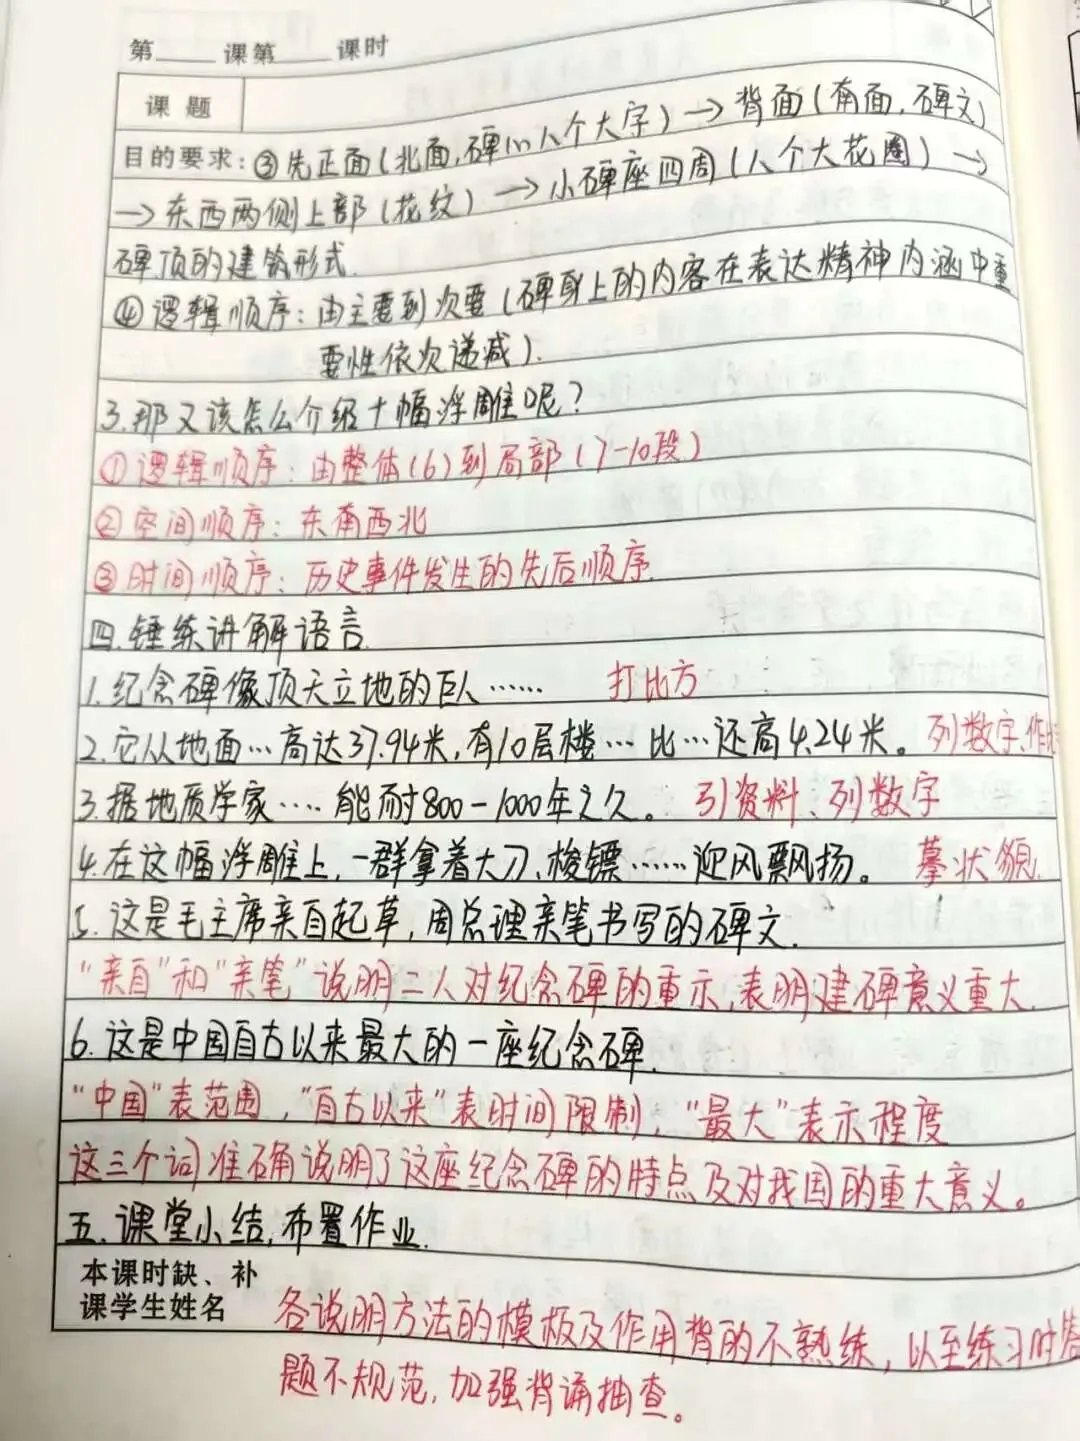 第____课第____课时
课题
目的要求：③先正面(北面,碑心八个大字)→背面(南面,碑文)
→东西两侧上部(花纹)→小碑座四周(八个大花圈)→
碑顶的建筑形式.
④逻辑顺序：由主要到次要(碑身上的内容在表达精神内涵中重
要性依次递减).
3.那又该怎么介绍十幅浮雕呢？
①逻辑顺序：由整体(6)到局部(7-10段)
②空间顺序：东南西北
③时间顺序：历史事件发生的先后顺序.
四.锤练讲解语言.
1.纪念碑像顶天立地的巨人…… 打比方
2.它从地面…高达37.94米,有10层楼…比…还高4.24米。 列数字、作比
3.据地质学家…. 能耐800-1000年之久。 引资料、列数字
4.在这幅浮雕上,一群拿着大刀、梭镖……迎风飘扬。 摹状貌.
5.这是毛主席亲自起草,周总理亲笔书写的碑文.
"亲自"和"亲笔"说明二人对纪念碑的重示,表明建碑意义重大.
6.这是中国自古以来最大的一座纪念碑.
"中国"表范围,"自古以来"表时间限制,"最大"表示程度
这三个词准确说明了这座纪念碑的特点及对我国的重大意义。
五.课堂小结,布置作业.
本课时缺、补
课学生姓名
各说明方法的模板及作用背的不熟练,以至练习时答
题不规范,加强背诵抽查。